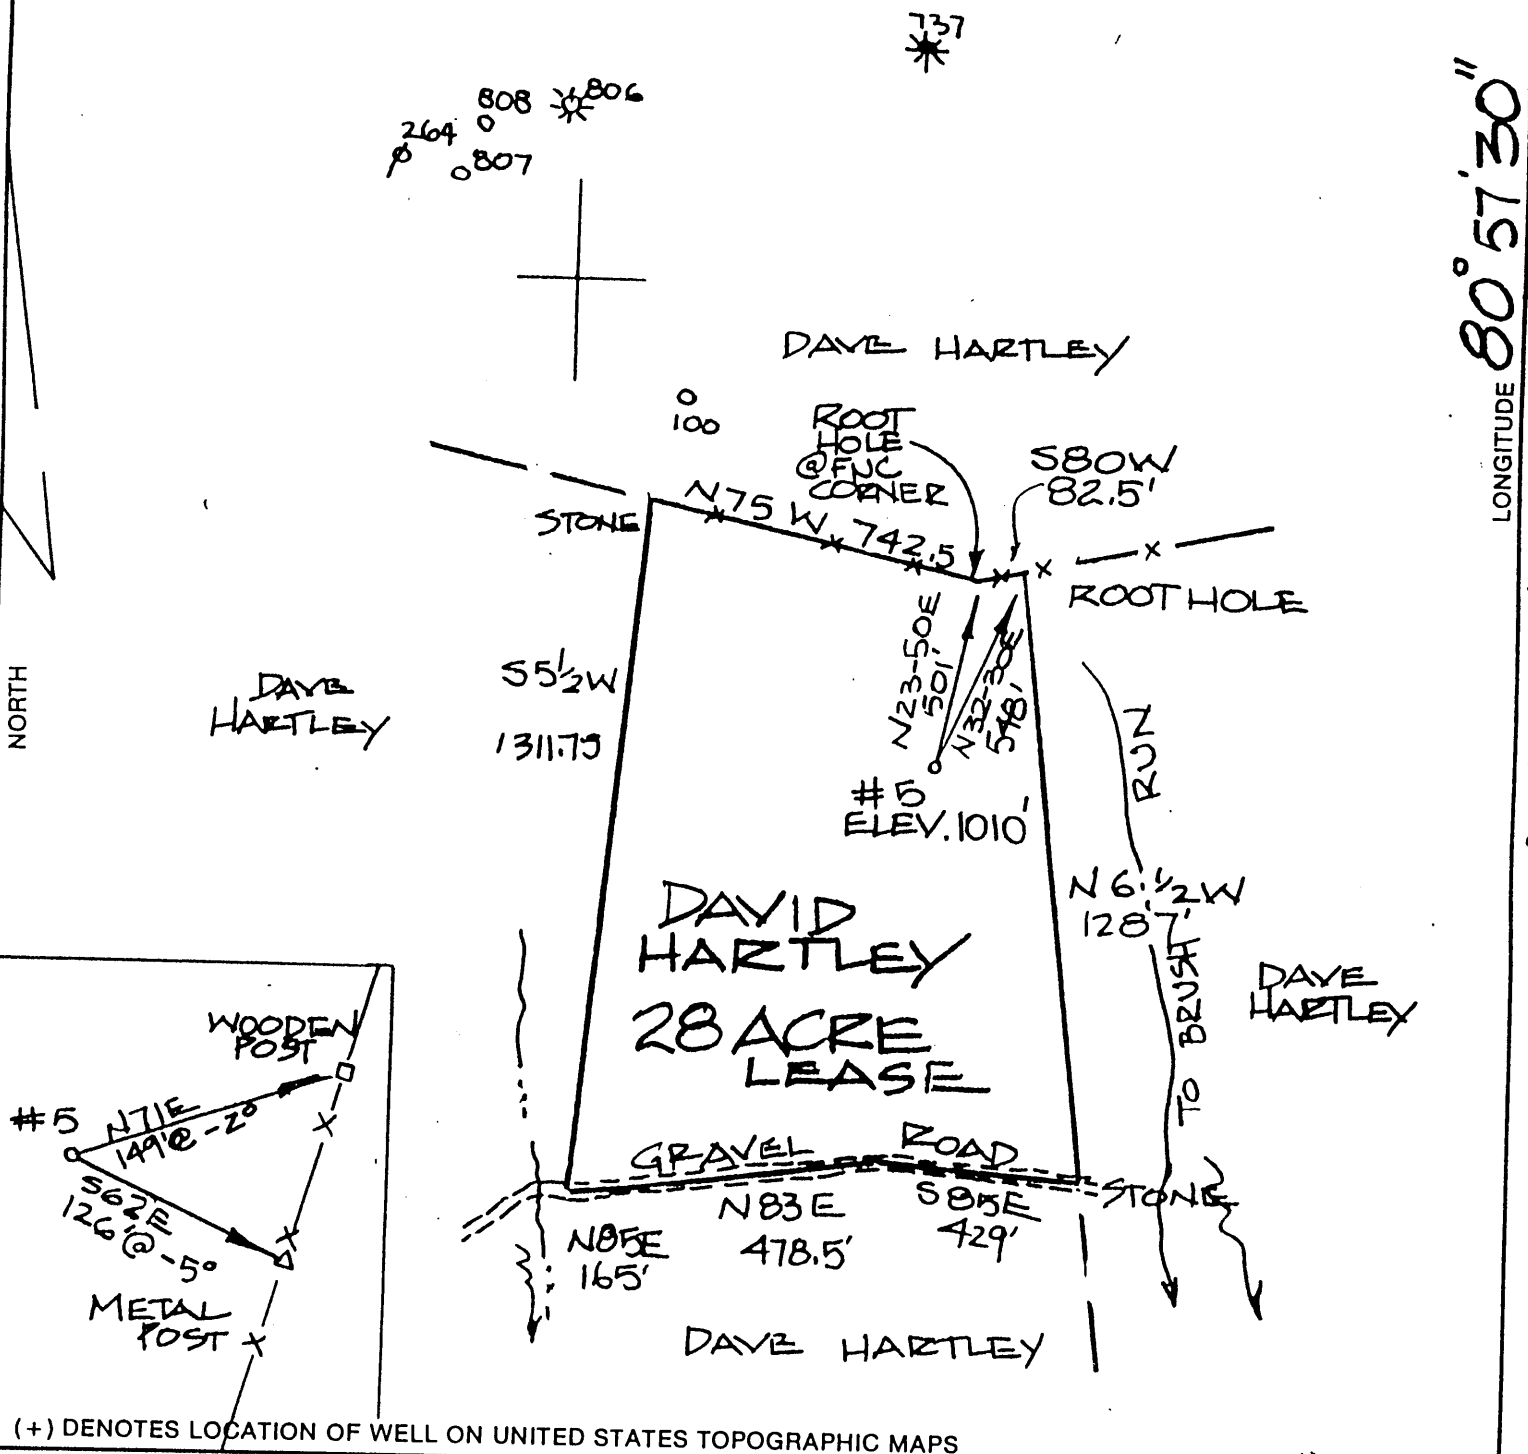 737
808
806
264
807
80°57'30"
LONGITUDE
DAVE HARTLEY
100
ROOT
HOLE
@ FNC
CORNER
S80W
82.5'
STONE
N75W 742.5
ROOT HOLE
NORTH
DAVE
HARTLEY
S5½W
1311.75
N23-50E
501'
N32-30E
548'
#5
ELEV. 1010'
RUN
N6½W
1287'
TO BRUSH
DAVID
HARTLEY
28 ACRE
LEASE
DAVE
HARTLEY
WOODEN
POST
#5
N71E
149'@-2°
S62E
126'@-5°
METAL
POST
GRAVEL ROAD
STONE
N83E
478.5'
S85E
429'
N85E
165'
DAVE HARTLEY
(+) DENOTES LOCATION OF WELL ON UNITED STATES TOPOGRAPHIC MAPS